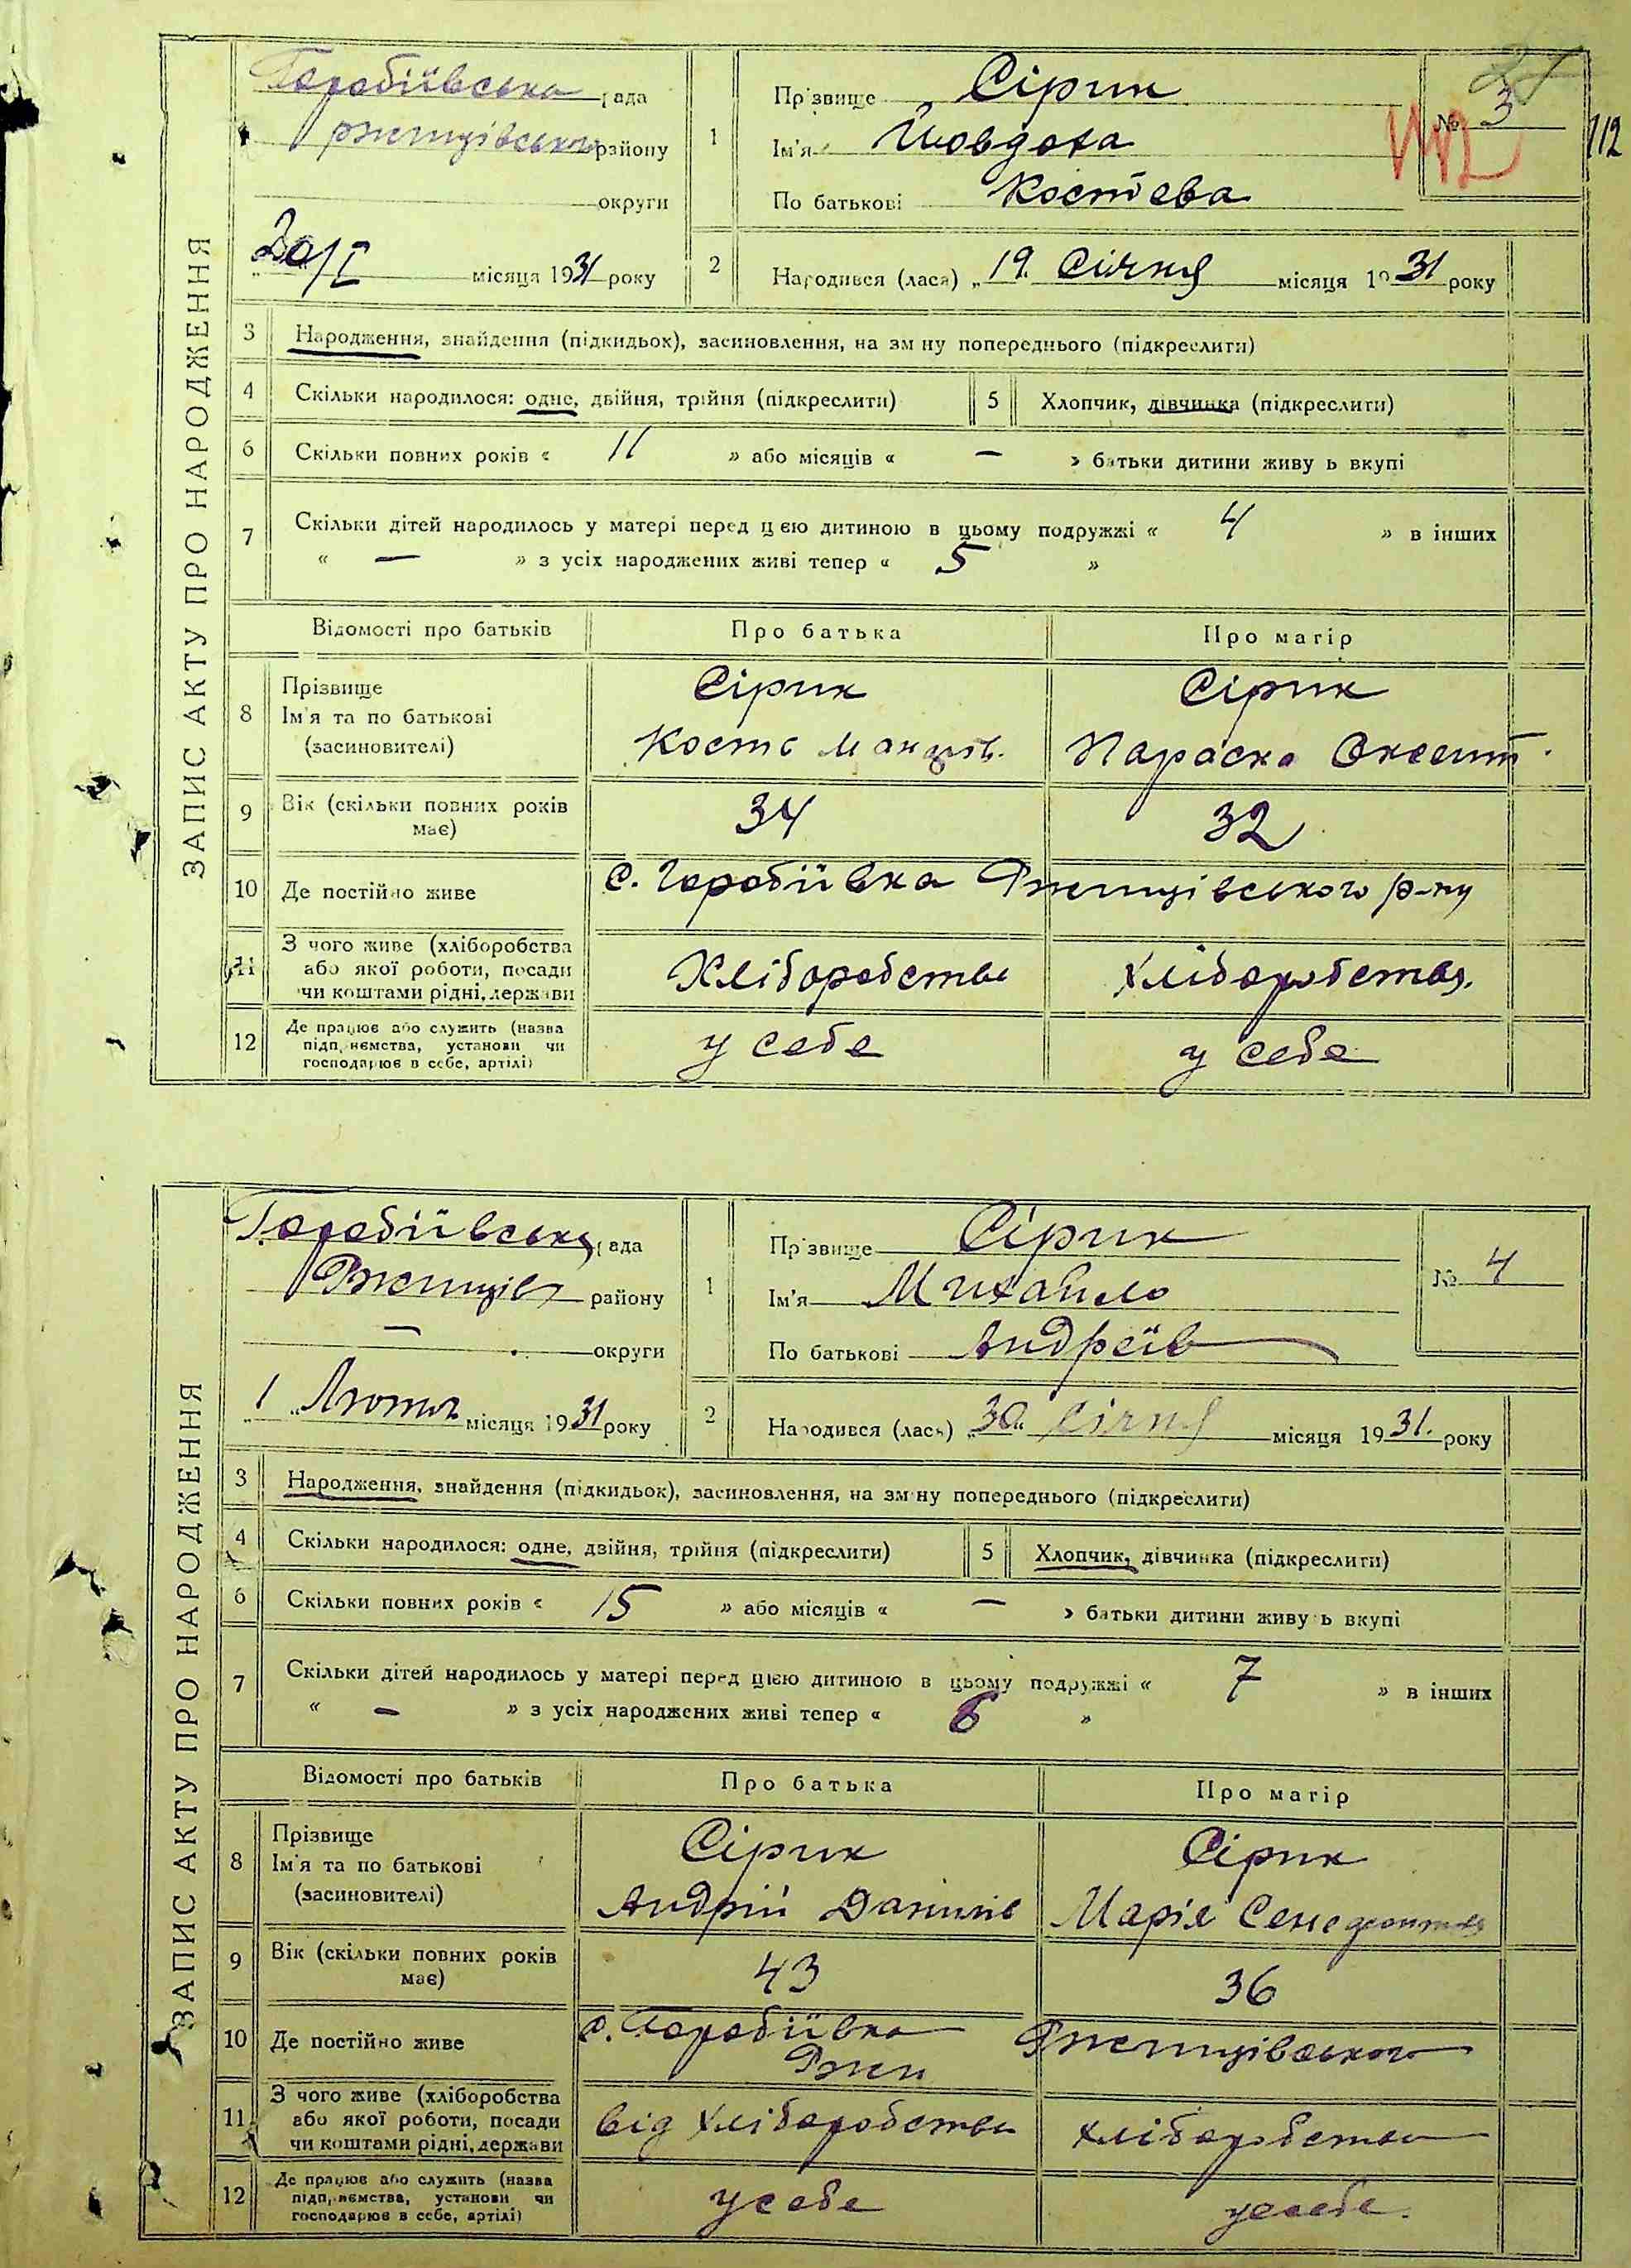 ЗАПИС АКТУ ПРО НАРОДЖЕННЯ
Горобіївська рада
Ржищівського району
округи
20/I місяця 1931 року
1
Прізвище Сірик
Ім'я Йовдоха
По батькові Костєва
№ 3
112
2
Народився (лася) „19. Січня місяця 1931 року
3 Народження, знайдення (підкидьок), засиновлення, на зміну попереднього (підкреслити)
4 Скільки народилося: одне, двійня, трійня (підкреслити) 5 Хлопчик, дівчинка (підкреслити)
6 Скільки повних років « 11 » або місяців « — » батьки дитини живуть вкупі
7 Скільки дітей народилось у матері перед цією дитиною в цьому подружжі « 4 » в інших
« — » з усіх народжених живі тепер « 5 »
Відомості про батьків Про батька Про матір
8 Прізвище Ім'я та по батькові (засиновителі)
Сірик Сірик
Кость Параска Оксент.
9 Вік (скільки повних років має) 34 32
10 Де постійно живе с. Горобіївка Ржищівського р-ну
11 З чого живе (хліборобства або якої роботи, посади чи коштами рідні, держави
Хліборобства Хліборобства.
12 Де працює або служить (назва підприємства, установи чи господарює в себе, артілі)
у себе у себе
ЗАПИС АКТУ ПРО НАРОДЖЕННЯ
Горобіївська рада
Ржищів района району
— округи
1 „Лютого місяця 1931 року
1
Прізвище Сірик
Ім'я Михайло
По батькові Андреїв
№ 4
2
Народився (лася) „30" Січня місяця 1931. року
3 Народження, знайдення (підкидьок), засиновлення, на зміну попереднього (підкреслити)
4 Скільки народилося: одне, двійня, трійня (підкреслити) 5 Хлопчик, дівчинка (підкреслити)
6 Скільки повних років « 15 » або місяців « — » батьки дитини живуть вкупі
7 Скільки дітей народилось у матері перед цією дитиною в цьому подружжі « 7 » в інших
« — » з усіх народжених живі тепер « 6 »
Відомості про батьків Про батька Про матір
8 Прізвище Ім'я та по батькові (засиновителі)
Сірик Сірик
Андрій Данилів Марія
9 Вік (скільки повних років має) 43 36
10 Де постійно живе с. Горобіївка Ржищівського
Ржи
11 З чого живе (хліборобства або якої роботи, посади чи коштами рідні, держави
від хліборобства хліборобства
12 Де працює або служить (назва підприємства, установи чи господарює в себе, артілі)
у себе у себе.